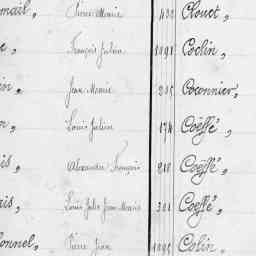 Pierre Marie 432 Clouet,
François Julien 1091 Coclin,
Jean Marie 205 Coconnier,
Louis Julien 174 Coëffé,
Alexandre François 218 Coëffé,
Louis Jules Jean Marie 301 Coeffé,
onnel, Pierre Jean 1095 Colin,